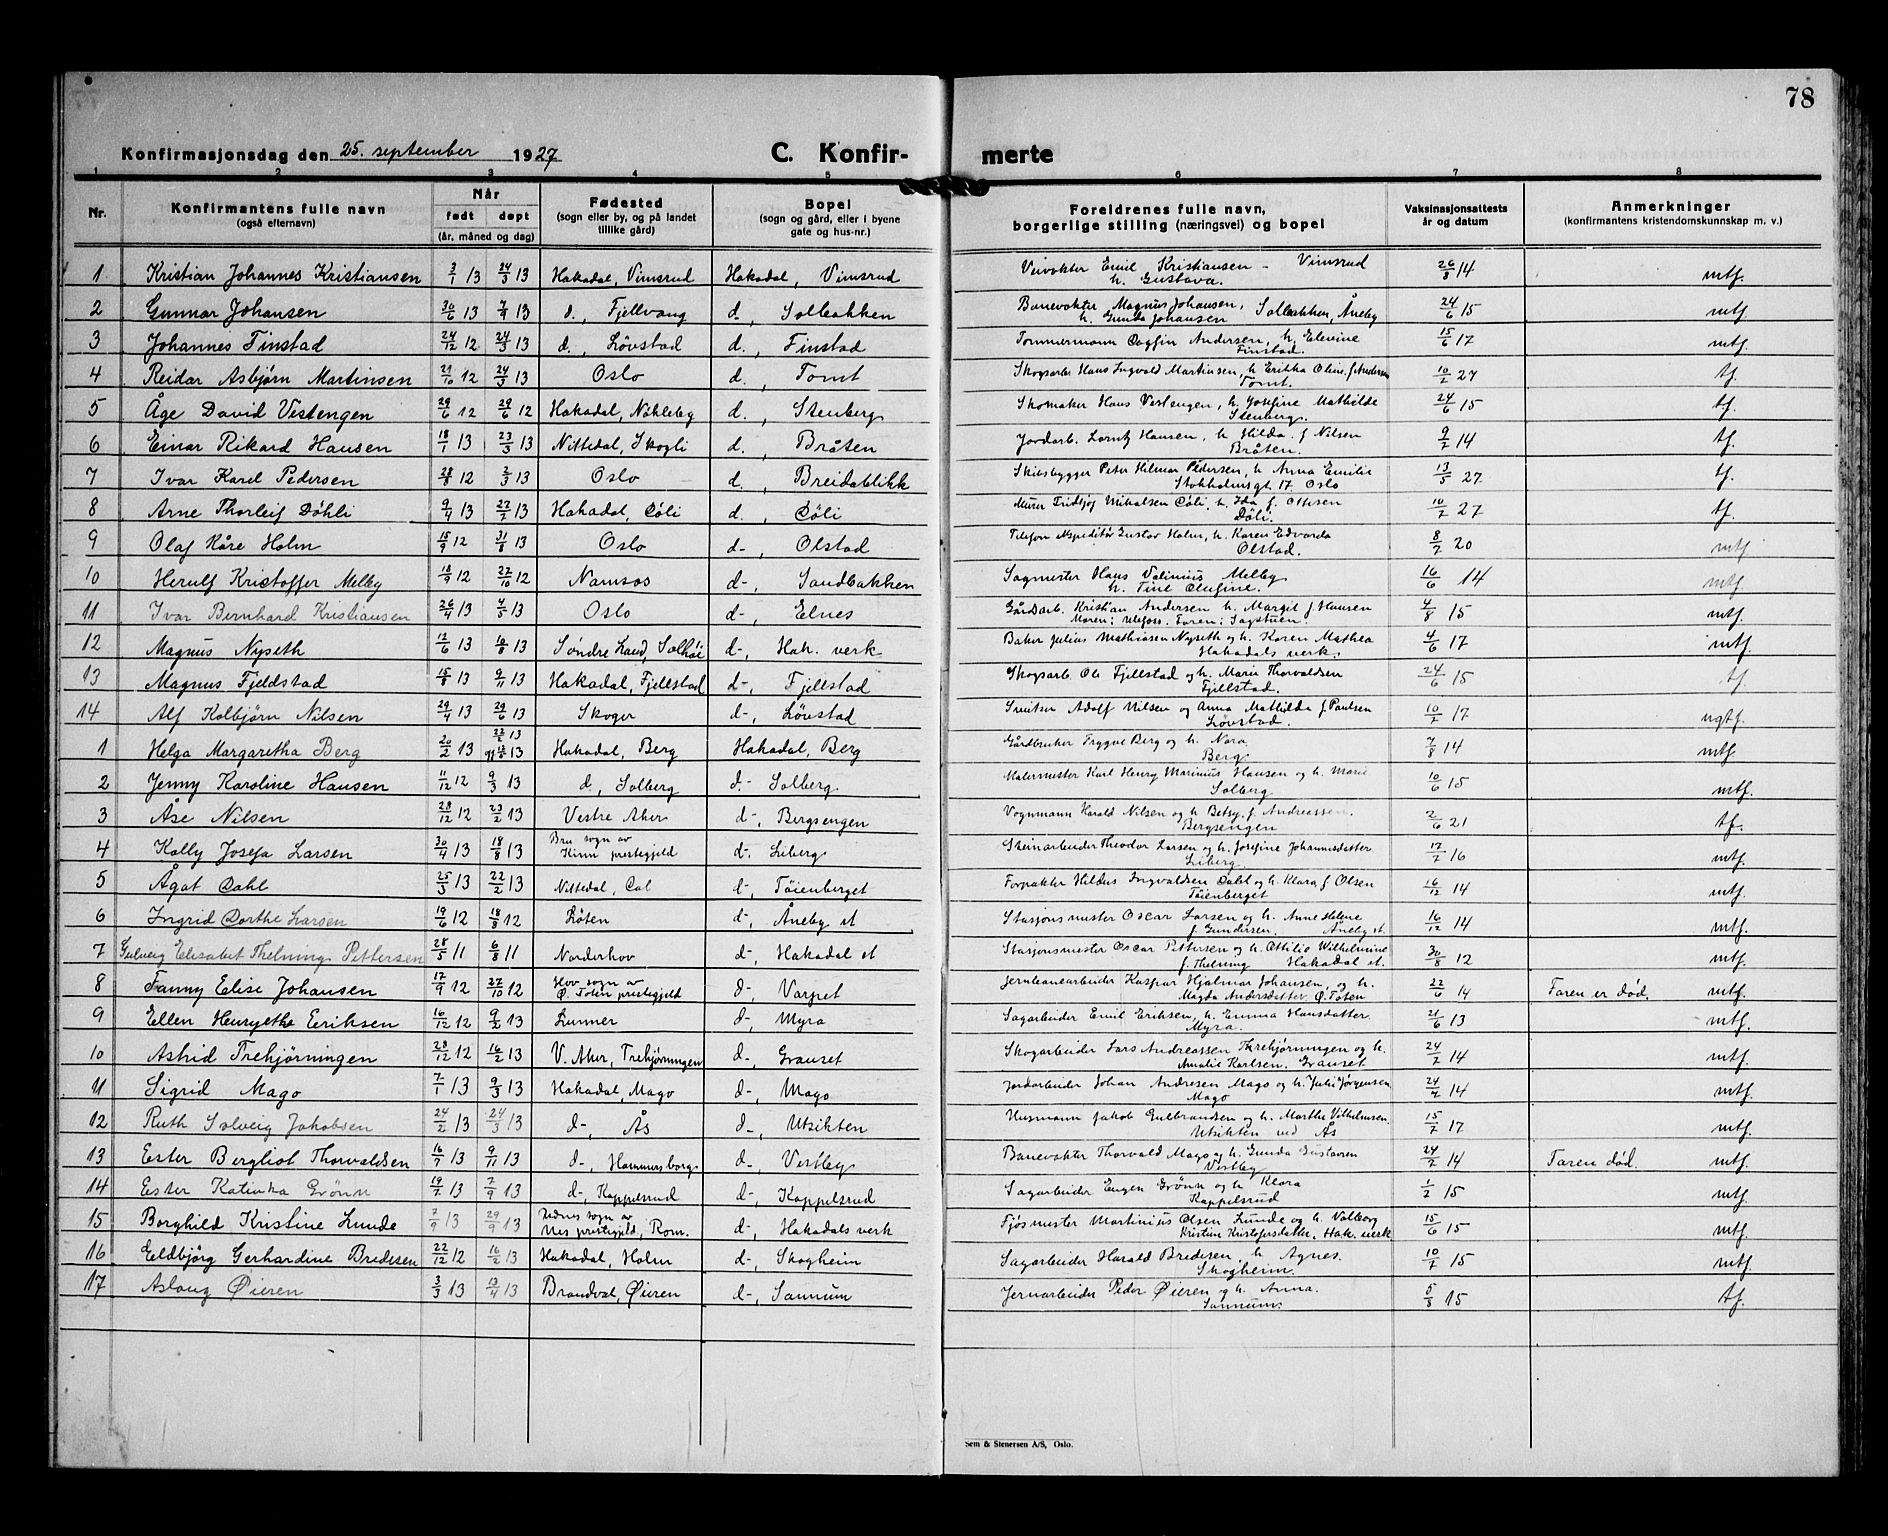 78
Konfirmasjonsdag den 25. september 1927 C. Konfir- merte
1 2 3 4 5 6 7 8
Nr. Konfirmantens fulle navn (også efternavn) Når født døpt (år, måned og dag) Fødested (sogn eller by, og på landet tillike gård) Bopel (sogn og gård, eller i byene gate og hus-nr.) Foreldrenes fulle navn, borgerlige stilling (næringsvei) og bopel Vaksinasjonsattests år og datum Anmerkninger (konfirmantens kristendomskunnskap m. v.)
1 Kristian Johannes Kristiansen 3/1 13 24/3 13 Hakadal, Vimsrud Hakadal, Vimsrud Veivokter Emil Kristiansen - Vimsrud h. Gustava. 26/8 14 mtf.
2 Gunnar Johansen 30/6 13 7/9 13 d., Fjellvang d., Solbakken Banevokter Magnus Johansen, Solbakken, Åneby h. Gunda Johansen 24/6 15 mtf.
3 Johannes Finstad 24/12 12 24/3 13 d., Lövstad d., Finstad Tømmermann Dagfin Andersen, h. Elevine Finstad. 15/6 17 mtf.
4 Reidar Asbjørn Martinsen 21/10 12 24/3 13 Oslo d., Tomt Skogsarb. Hans Ingvald Martinsen, h. Erikka Oline f. Andersen Tomt. 10/2 27 tf.
5 Åge David Vestengen 29/6 12 29/6 12 Hakadal, Nökleby d., Stenberg Skomaker Hans Vestengen, h. Josefine Mathilde Stenberg. 24/6 15 tf.
6 Einar Rikard Hansen 18/1 13 23/3 13 Nittedal, Skogli d., Bråten Jordarb. Lorntz Hansen, h. Hilda f. Nilsen Bråten. 9/2 14 tf.
7 Ivar Karel Pedersen 28/8 12 2/3 13 Oslo d., Breidablikk Skibsbygger Peter Hilmar Pedersen, h. Anna Emilie Stokholmsgt. 17. Oslo 13/5 27 tf.
8 Arne Thorleif Döhli 9/4 13 22/2 13 Hakadal, Döli d., Döli Murer Fridtjof Mikalsen Döli, h. Ida f. Ottesen Döli. 10/2 27 tf.
9 Olaf Kåre Holm 15/9 12 31/8 13 Oslo d-, Olstad Telefon Ekspeditör Gustav Holm, h. Karen Edvarda Olstad. 8/2 20 mtf
10 Herulf Kristoffer Melby 18/9 12 27/10 12 Namsos d-, Sandbakken Sagmester Hans Valinius Melby h. Tine Olufine. 16/6 14 mtf.
11 Ivar Bernhard Kristiansen 26/4 13 4/5 13 Oslo d-, Elnes Gårdsarb. Kristian Andersen h. Margit f. Hansen Moren: Ulefoss. Faren: Sagstuen. 4/8 15 mtf.
12 Magnus Nyseth 12/6 13 10/8 13 Søndre Land, Solhöi d-, Hak. verk Baker Julius Mathiasen Nyseth og h. Karen Mathea Hakadals verk. 4/6 17 mtf.
13 Magnus Fjeldstad 15/8 13 9/11 13 Hakadal, Fjellstad d-, Fjellstad Skogsarb. Ole Fjellstad og h. Marie Thorvaldsen Fjellstad. 24/6 15 tf.
14 Alf Kolbjörn Nilsen 29/4 13 29/6 13 Skoger d-, Lövstad Sveitser Adolf Nilsen og Anna Mathilda f. Paulsen Lövstad. 10/2 17 ugtf.
1 Helga Margaretha Berg 20/2 13 22/2 13 13 Hakadal, Berg Hakadal, Berg Gårdbruker Trygve Berg og h. Nora. Berg. 7/8 14 mtf.
2 Jenny Karoline Hansen 11/12 12 9/3 13 d., Solberg d.- Solberg Malermester Karl Henry Marinius Hansen og h. Marie Solberg 10/6 15 mtf.
3 Åse Nilsen 28/12 12 23/2 13 Vestre Aker d-, Bergsengen Vognmann Harald Nilsen og h. Betsy f. Andreassen. Bergsengen 2/6 21 tf.
4 Kally Josefa Larsen 30/4 13 18/8 13 Bru sogn av Kinn prestegjeld d-, Liberg Steinarbeider Theodor Larsen og h. Josefine Johannesdatter Liberg. 17/7 16 mtf.
5 Ågot Dahl 25/3 13 22/2 13 Nittedal, Dal d-, Töienberget Forpakter Hildus Ingvaldsen Dahl og h. Klara f. Olsen Töienberget 16/12 14 mtf.
6 Ingrid Dorthe Larsen 19/6 12 18/8 12 Löten d-, Åneby st Stasjonsmester Oscar Larsen og h. Anne Helene f. Gundersen. Åneby st. 16/12 14 mtf.
7 Gulveig Elisabet Thelning Pettersen 28/5 11 6/8 11 Norderhov d-, Hakadal st Stasjonsmester Oscar Pettersen og h. Ottilie Wilhelmine f. Thelning Hakadal st. 30/8 12 mtf.
8 Fanny Elise Johansen 17/9 12 27/10 12 Hov sogn av Ø. Toten prestegjeld d-, Varpet Jernbanearbeider Kaspar Hjalmar Johansen, og h. Magda Andersdatter Ø. Toten 22/6 14 Faren er död. mtf.
9 Ellen Henryette Eriksen 16/12 12 9/2 13 Lunner d-, Myra Sagarbeider Emil Eriksen, h. Emma Hansdatter Myra. 21/6 13 mtf.
10 Astrid Trehjörningen 28/12 12 16/2 13 V. Aker, Trehjörningen d-, Grauset Skogarbeider Lars Andreassen Threhjörningen og h. Amalie Karlsen. Grauset 24/7 14 mtf.
11 Sigrid Mago 7/1 13 9/3 13 Hakadal, Mago d-, Mago Jordarbeider Johan Andresen Mago og h. Julie Jörgensen Mago 24/7 14 mtf.
12 Ruth Solveig Jakobsen 24/2 13 24/3 13 d-, Ås d-, Utsikten Husmann Jakob Gulbrandsen og h. Marthe Vilhelmsen. Utsikten ved Ås 15/7 17 mtf.
13 Ester Bergliot Thorvaldsen 16/7 13 9/11 13 d-, Hammersborg d-, Vestby Banevokter Thorvald Mago og h. Gunda Gustavsen Vestby 24/7 14 Faren död. mtf.
14 Ester Katinka Grönn 19/7 13 7/9 13 d-, Kappelsrud d-, Kappelsrud Sagarbeider Eugen Grönn og h. Klara Kappelsrud 1/2 15 mtf.
15 Borghild Kristine Lunde 7/9 13 29/9 13 Udnes sogn av Nes prestegjeld, Rom. d-, Hakadals verk Fjösmester Martinius Olsen Lunde og h. Valborg Kristine Kristofersdatter, Hak. verk 15/6 15 mtf.
16 Eldbjörg Gerhardine Bredesen 22/12 12 16/2 13 Hakadal, Holm d-, Skogheim Sagarbeider Harald Bredesen, h. Agnes. Skogheim. 10/7 15 mtf.
17 Aslaug Øieren 3/3 13 13/4 13 Brandval, Øieren d-, Sannum Jernarbeider Peder Øieren og h. Anna. Sannum. 5/8 15 tf.
Sem & Stenersen A/S, Oslo.